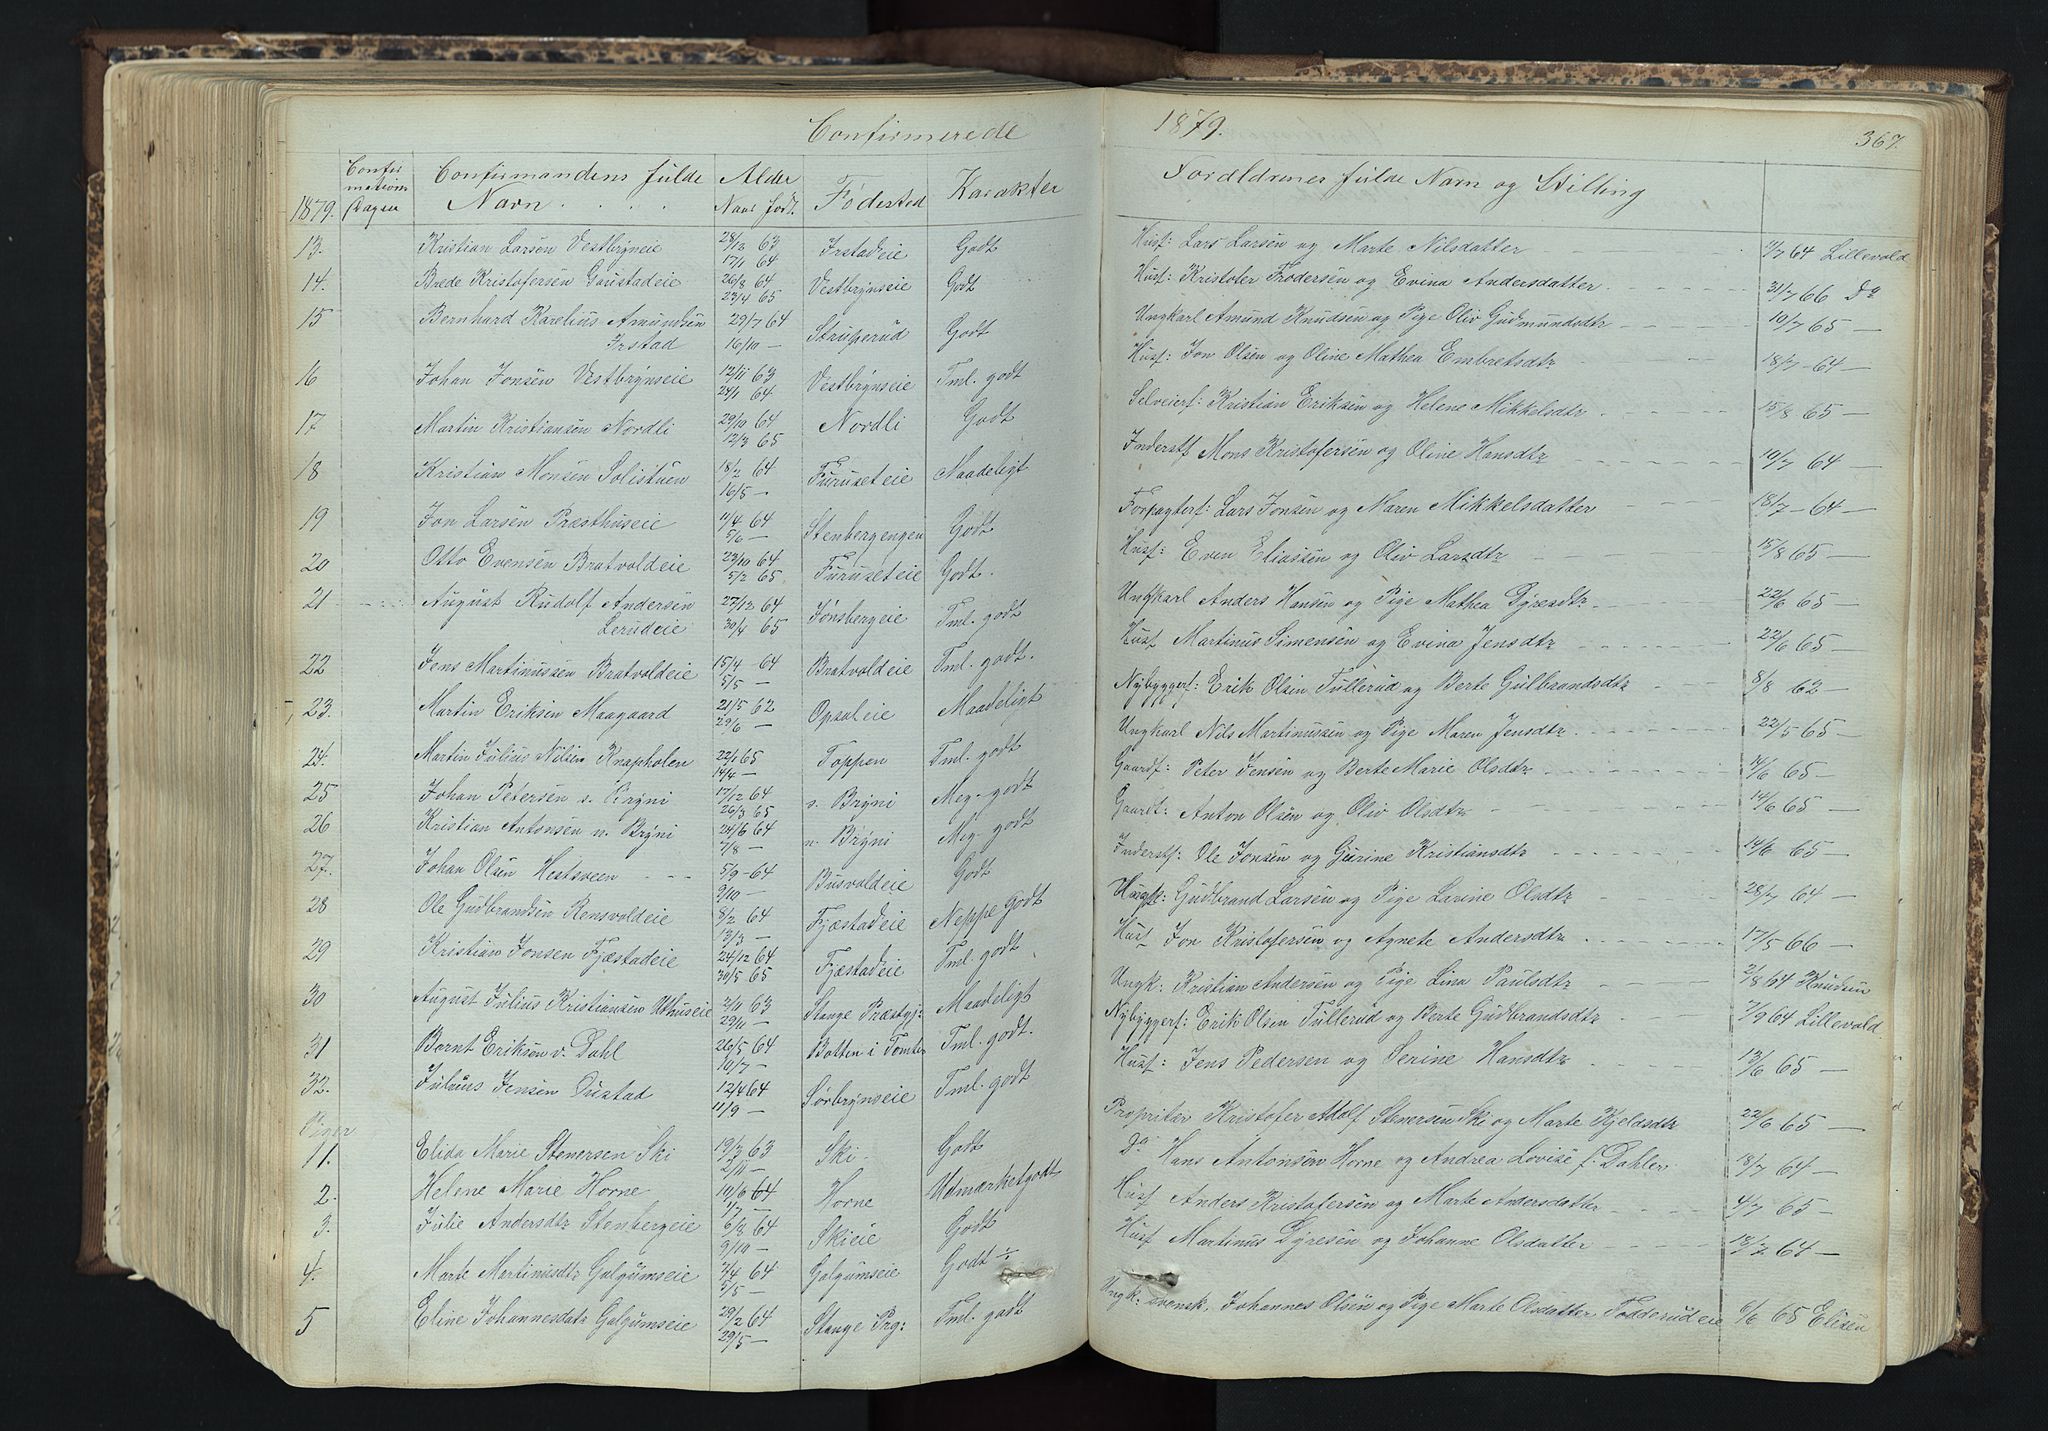 Confirmerede 1879. 367.
1879. Confirmations Dagen Confirmandens fulde Navn Alder Naar født. Fødested Karakter Forældrenes fulde Navn og Stilling
13. Kristian Larsen Vestbryneie 28/12 63 17/1 64 Irstadeie Godt Husf: Lars Larsen og Marte Nilsdatter 64 Lillevold
14. Brede Kristofersen Gaustadeie 26/8 64 23/4 65 Vestbrynseie Godt Husf: Kristofer Frodersen og Evina Andersdatter 31/7 66 Do
15 Bernhard Karelius Amundsen Irstad 29/7 64 16/10 — Struperud Godt Ungkarl Amund Knudsen og Pige Oliv Gudmundsdtr 10/7 65 —
16 Johan Jonsen Vestbrynseie 12/11 63 24/1 64 Vestbrynseie Tml. godt Husf: Jon Olsen og Oline Mathea Embretsdtr 18/7 - 64 —
17 Martin Kristiansen Nordli 29/10 64 12/3 65 Nordli Godt Selveierf: Kristian Eriksen og Helene Mikkelsdtr 15/8 65 —
18 Kristian Monsen Solistuen 18/2 64 16/5 — Furuseteie Maadeligt Inderstf Mons Kristofersen og Oline Hansdtr 10/7 64 —
19 Jon Larsen Præsthuseie 11/4 64 5/6 — Stenbergengen Godt Forpagterf: Lars Jonsen og Maren Mikkelsdatter 18/7 - 64 —
20 Otto Evensen Bratvoldeie 23/10 64 5/2 65 Furuseteie Godt. Husf: Even Eliassen og Oliv Larsdtr 15/8 65 —
21 August Rudolf Andersen Lerudeie 27/12 64 30/4 65 Jønsbergeie Tml. godt Ungkarl Anders Hansen og Pige Mathea Dyresdtr 22/6 65 —
22 Jens Martinussen Bratvoldeie 15/4 - 64 5/5 — Bratvoldeie Tml. godt. Husf Martinus Simensen og Evina Jensdtr 22/6 65 —
23. Martin Eriksen Maagaard 21/5 62 29/6 — Opsaleie Maadeligt Nybyggerf: Erik Olsen Tullerud og Berte Gulbrandsdtr 8/8 62 —
24. Martin Julius Nilsen Knapholen 22/1 65 14/4 — Toppen Tml. godt Ungkarl Nils Martinussen og Pige Maren Jensdtr 22/5 65 —
25 Johan Petersen s. Bryni 17/12 64 26/3 65 s. Bryni Meg. godt Gaardf: Peter Jensen og Berte Marie Olsdtr 14/6 65 —
26 Kristian Antonsen n. Bryni 24/6 64 7/8 — n. Bryni Meg. godt Gaardf: Anton Olsen og Oliv Olsdtr 14/6 65 —
27. Johan Olsen Hestsveen 5/9 - 64 9/10 — Busvoldeie Godt Inderstf: Ole Jonsen og Gurine Kristiansdtr 14/6 65 —
28 Ole Gudbrandsen Rensvoldeie 8/2 64 13/3 — Fjæstadeie Neppe Godt Gudbrand Larsen og Pige Larine Olsdtr 28/7 64 —
29 Kristian Jonsen Fjæstadeie 24/12 64 30/5 65 Fjæstadeie Tml. godt Husf Jon Kristofersen og Agnete Andersdtr 17/5 66 —
30 August Julius Kristiansen Uthuseie 2/11 63 29/11 — Stange Præstgj: Maadeligt Ungk: Kristian Andersen og Pige Lina Paulsdtr 2/8 64 Knudsen
31 Bernt Eriksen v. Dahl 26/5 64 10/7 — Botten i Tomter Tml. godt. Nybyggerf: Erik Olsen Tullerud og Berte Gudbrandsdtr 7/9 64 Lillevold
32. Julius Jensen Oustad 12/4 64 11/9 — Sørbrynseie Tml. godt Husf: Jens Pedersen og Serine Hansdtr 13/6 65 —
Piger
1 1. Elida Marie Stenersen Ski 19/3 63 2/11 — Ski Godt Propritær Kristofer Adolf Stenersen Ski og Marte Kjeldsdtr 22/6 65 —
2. Helene Marie Horne 10/6 64 1/7 — Horne Udmærketgodt Do Hans Antonsen Horne og Andrea Lovise f. Dahler 18/7 64 —
3. Julie Andersdtr Stenbergeie 6/8 64 9/10 — Skieie Godt Husf Anders Kristofersen og Marte Andersdatter 4/7 65 —
4. Marte Martinusdtr Galgumseie 3/4 64 5/5 — Galgumseie Godt Husf Martinus Dyresen og Johanne Olsdatter 18/7 64 —
5 Eline Johannesdatr Galgumseie 29/2 64 29/5 — Stange Prg: Tml. godt Ungk: svensk. Johannes Olsen og Pige Marte Olsdatter Todderudeie 6/6 65 Elisen